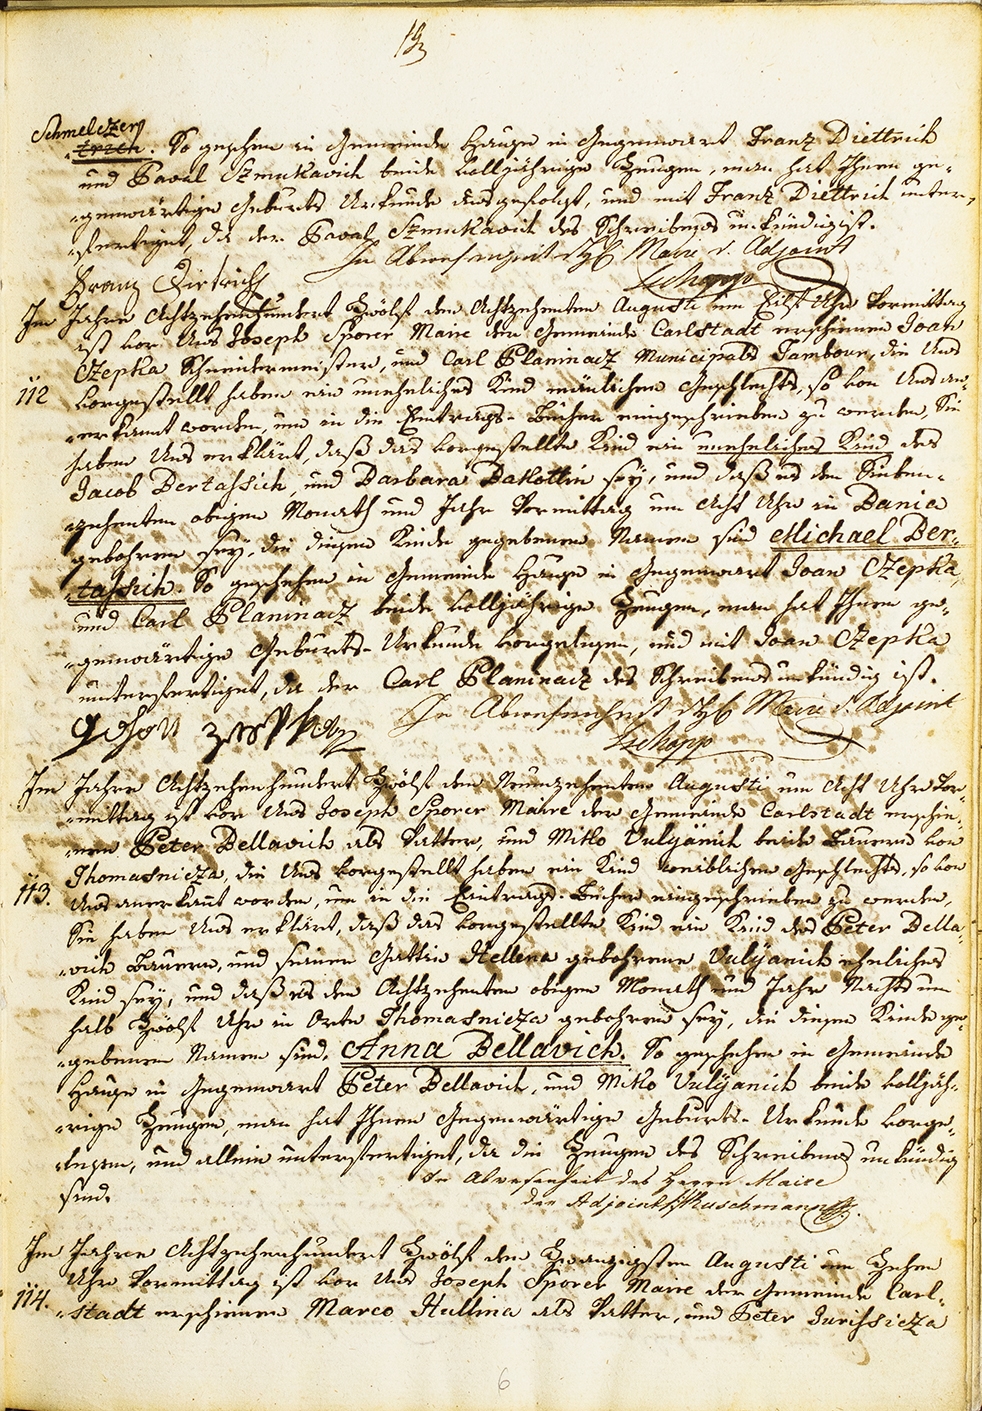 Schmelczer
Erzch. So geschehen in Gemeinde Hause in Gegenwart Franz Diettrich
und Pavał Szmukavich beide volljährige Zeugen, man hat Ihnen ge-
-genwärtige Geburts Urkunde und mit Franz Diettrich unter-
-fertiget, da der Pavał Szmukavich des Schreibens unkündig ist.
In Abwesenheit des H Maire d. Adjoint
Franz Dietrich
Tschopp
Im Jahre Achtzehenhundert Zwölf den Achtzehenten Augusti um Eilf Uhr Vormittag
ist vor Uns Joseph Sporer Maire der Gemeinde Carlstadt erschienen Joan
Czepka Schneidermeister, und Carl Płaninacz Municipals Tambour, die Uns
112
vorgestellt haben ein uneheliches Kind mänlichen Geschlechts, so von Uns an-
-erkannt worden, um in die Eintrags-Bücher eingeschrieben zu werden, Sie
haben Uns erklärt, daß das vorgestellte Kind ein uneheliches Kind des
Jacob Bertassich, und Barbara Bakottin sey, und daß es den Sieben-
-zehenten obigen Monath und Jahr Vormittag um Acht Uhr in Bania
gebohren sey, die diesem Kinde gegebenen Namen sind Michael Ber-
-tassich. So geschehen in Gemeinde Hause in Gegenwart Joan Czepka,
und Carl Płaninacz beide volljährige Zeugen, man hat Ihnen ge-
-genwärtige Geburts-Urkunde vorgelesen, und mit Joan Czepka
unterfertiget, da der Carl Płaninacz des Schreibens unkündig ist.
In Abwesenheit des H Maire d. Adjoint
Tschopp
Im Jahre Achtzehenhundert Zwölf den Neunzehenten Augusti um Acht Uhr Vor-
-mittag ist vor Uns Joseph Sporer Maire der Gemeinde Carlstadt erschie-
-nen Peter Bellavich als Vatter, und Mitko Vulÿanich beide Bauern von
Thomasnicza, die Uns vorgestellt haben ein Kind weiblichen Geschlechts, so von
113.
Uns anerkannt worden, um in die Eintrags-Bücher eingeschrieben zu werden,
Sie haben Uns erklärt, daß das vorgestellte Kind ein Kind des Peter Bella-
-vich Bauern, und seiner Gattin Hellena gebohrene Vulÿanich eheliches
Kind sey, und daß es den Achtzehenten obigen Monath und Jahr Nachts um
halb Zwölf Uhr in Orte Thomasnicza gebohren sey, die diesem Kinde ge-
-gebenen Namen sind. Anna Bellavich. So geschehen in Gemeinde
Hause in Gegenwart Peter Bellavich, und Mitko Vulÿanich beide volljäh-
-rige Zeugen, man hat Ihnen Gegenwärtige Geburts-Urkunde vorge-
-lesen, und allein unterfertiget, da die Zeugen des Schreibens unkündig
sind.
In Abwesenheit des Herrn Maire
der Adjoint
Im Jahre Achtzehenhundert Zwölf den Zwanzigsten Augusti um Zehen
Uhr Vormittag ist vor Uns Joseph Sporer Maire der Gemeinde Carl-
114.
-stadt erschienen Marco Hullina als Vatter, und Peter Jurissicza
6